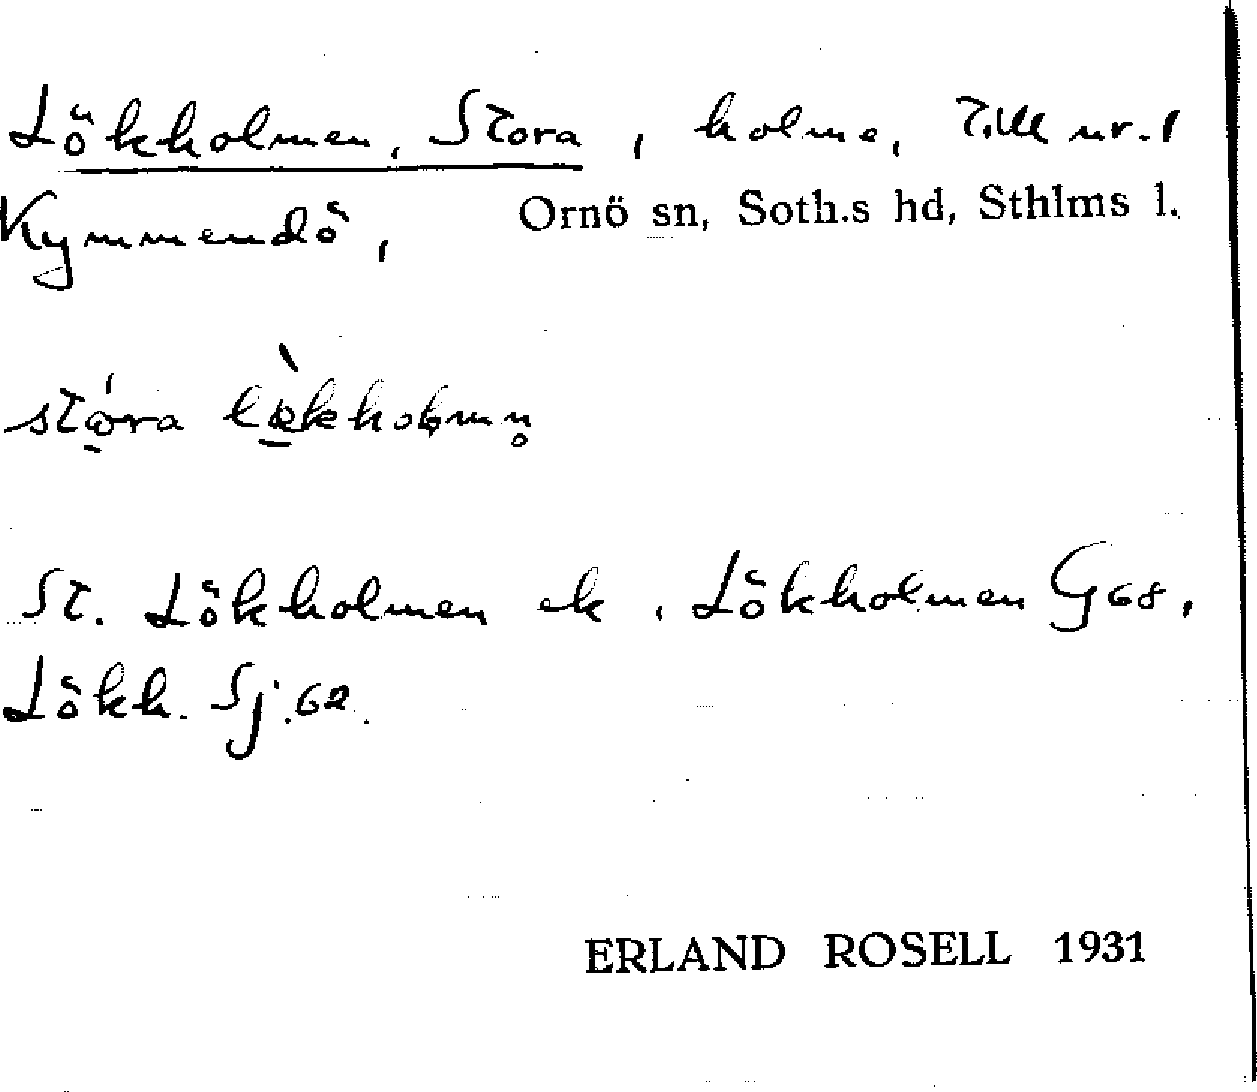 Lökholmen, Stora, holme, Till nr. 1
Kymmendö, Ornö sn, Soth.s hd, Sthlms l.
stóra
St. Lökholmen ek, Lökholmen G68,
Lökh. Sj. 62.
ERLAND ROSELL 1931